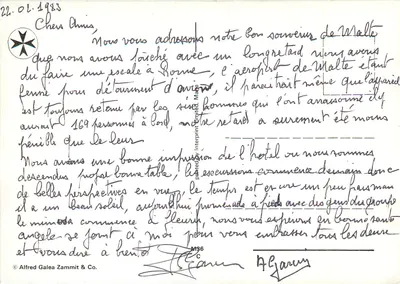 22.02.1983
Chers Amis,
Nous vous adressons notre bon souvenir de Malte
que nous avons touché avec un long retard nous avons
du faire une escale à Rome, l'aéroport de Malte étant
fermé pour détournement d'avion, il paraitrait même que l'appareil
est toujours retenu par les six hommes qui l'ont il y
aurait 169 personnes à bord, notre retard a surement été moins
pénible que le leur.
Nous avons une bonne impression de l'hotel ou nous sommes
descendus propre bonne table, les excursions commence demain donc
de belles perspectives en vue, le temps est encore un peu pas mal
il a un beau soleil, aujourd'hui promenade à pieds avec des gens du groupe
le mimosa commence à fleurir, nous vous espérons en bonne santé
angele se joint à moi pour vous embrasser tous les deux
et vous dire à bientôt
© Alfred Galea Zammit & Co.